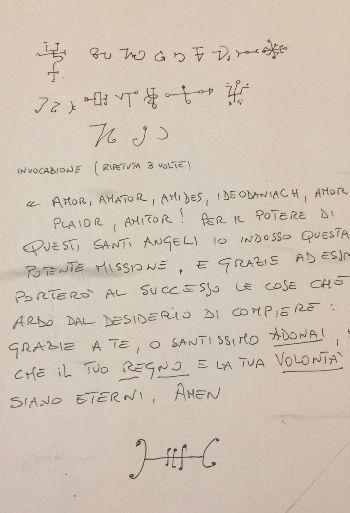 INVOCAZIONE (RIPETUTA 3 VOLTE)
« AMOR, AMATOR, AMIDES, IDEODANIACH, AMOR
PLAIOR, AMITOR! PER IL POTERE DI
QUESTI SANTI ANGELI IO INDOSSO QUESTA
POTENTE MISSIONE, E GRAZIE AD ESSA
PORTERÒ AL SUCCESSO LE COSE CHE
ARDO DAL DESIDERIO DI COMPIERE:
GRAZIE A TE, O SANTISSIMO ADONAI,
CHE IL TUO REGNO E LA TUA VOLONTÀ
SIANO ETERNI, AMEN